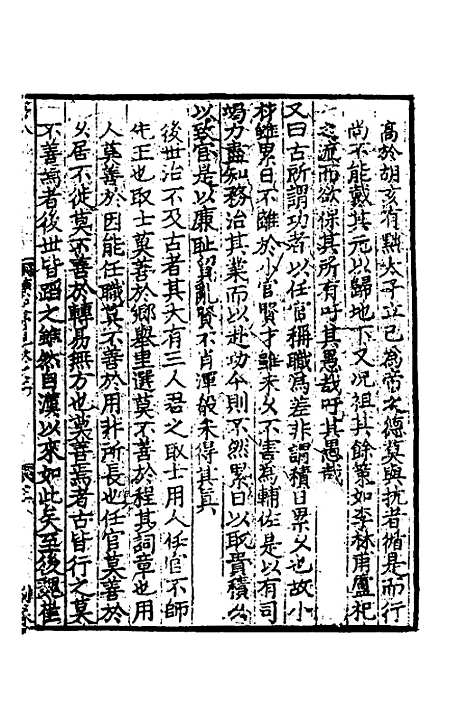 高於胡亥有點太子立已為帝文德莫與抗者循是而行
尚不能戴其元以歸地下又況祖其餘策如李林甫盧杞
之流而欲保其所有吁其愚哉吁其愚哉
又曰古所謂功者以任官稱職為差非謂積日累久也故小
材雖累日不離於小官賢才雖未久不害為輔佐是以有司
竭力盡知務治其業而以赴功今則不然累日以取貴積久
以致官是以廉耻貿亂賢不肖渾殽未得其真
後世治不及古者其大有三人君之取士用人任官不師
先王也取士莫善於鄉舉里選莫不善於程其詞章也用
人莫善於因能任職莫不善於用非所長也任官莫善於
久居不徙莫不善於轉易無方也莫善焉者古皆行之莫
不善焉者後世皆蹈之雖然自漢以來如此矣至後魏崔